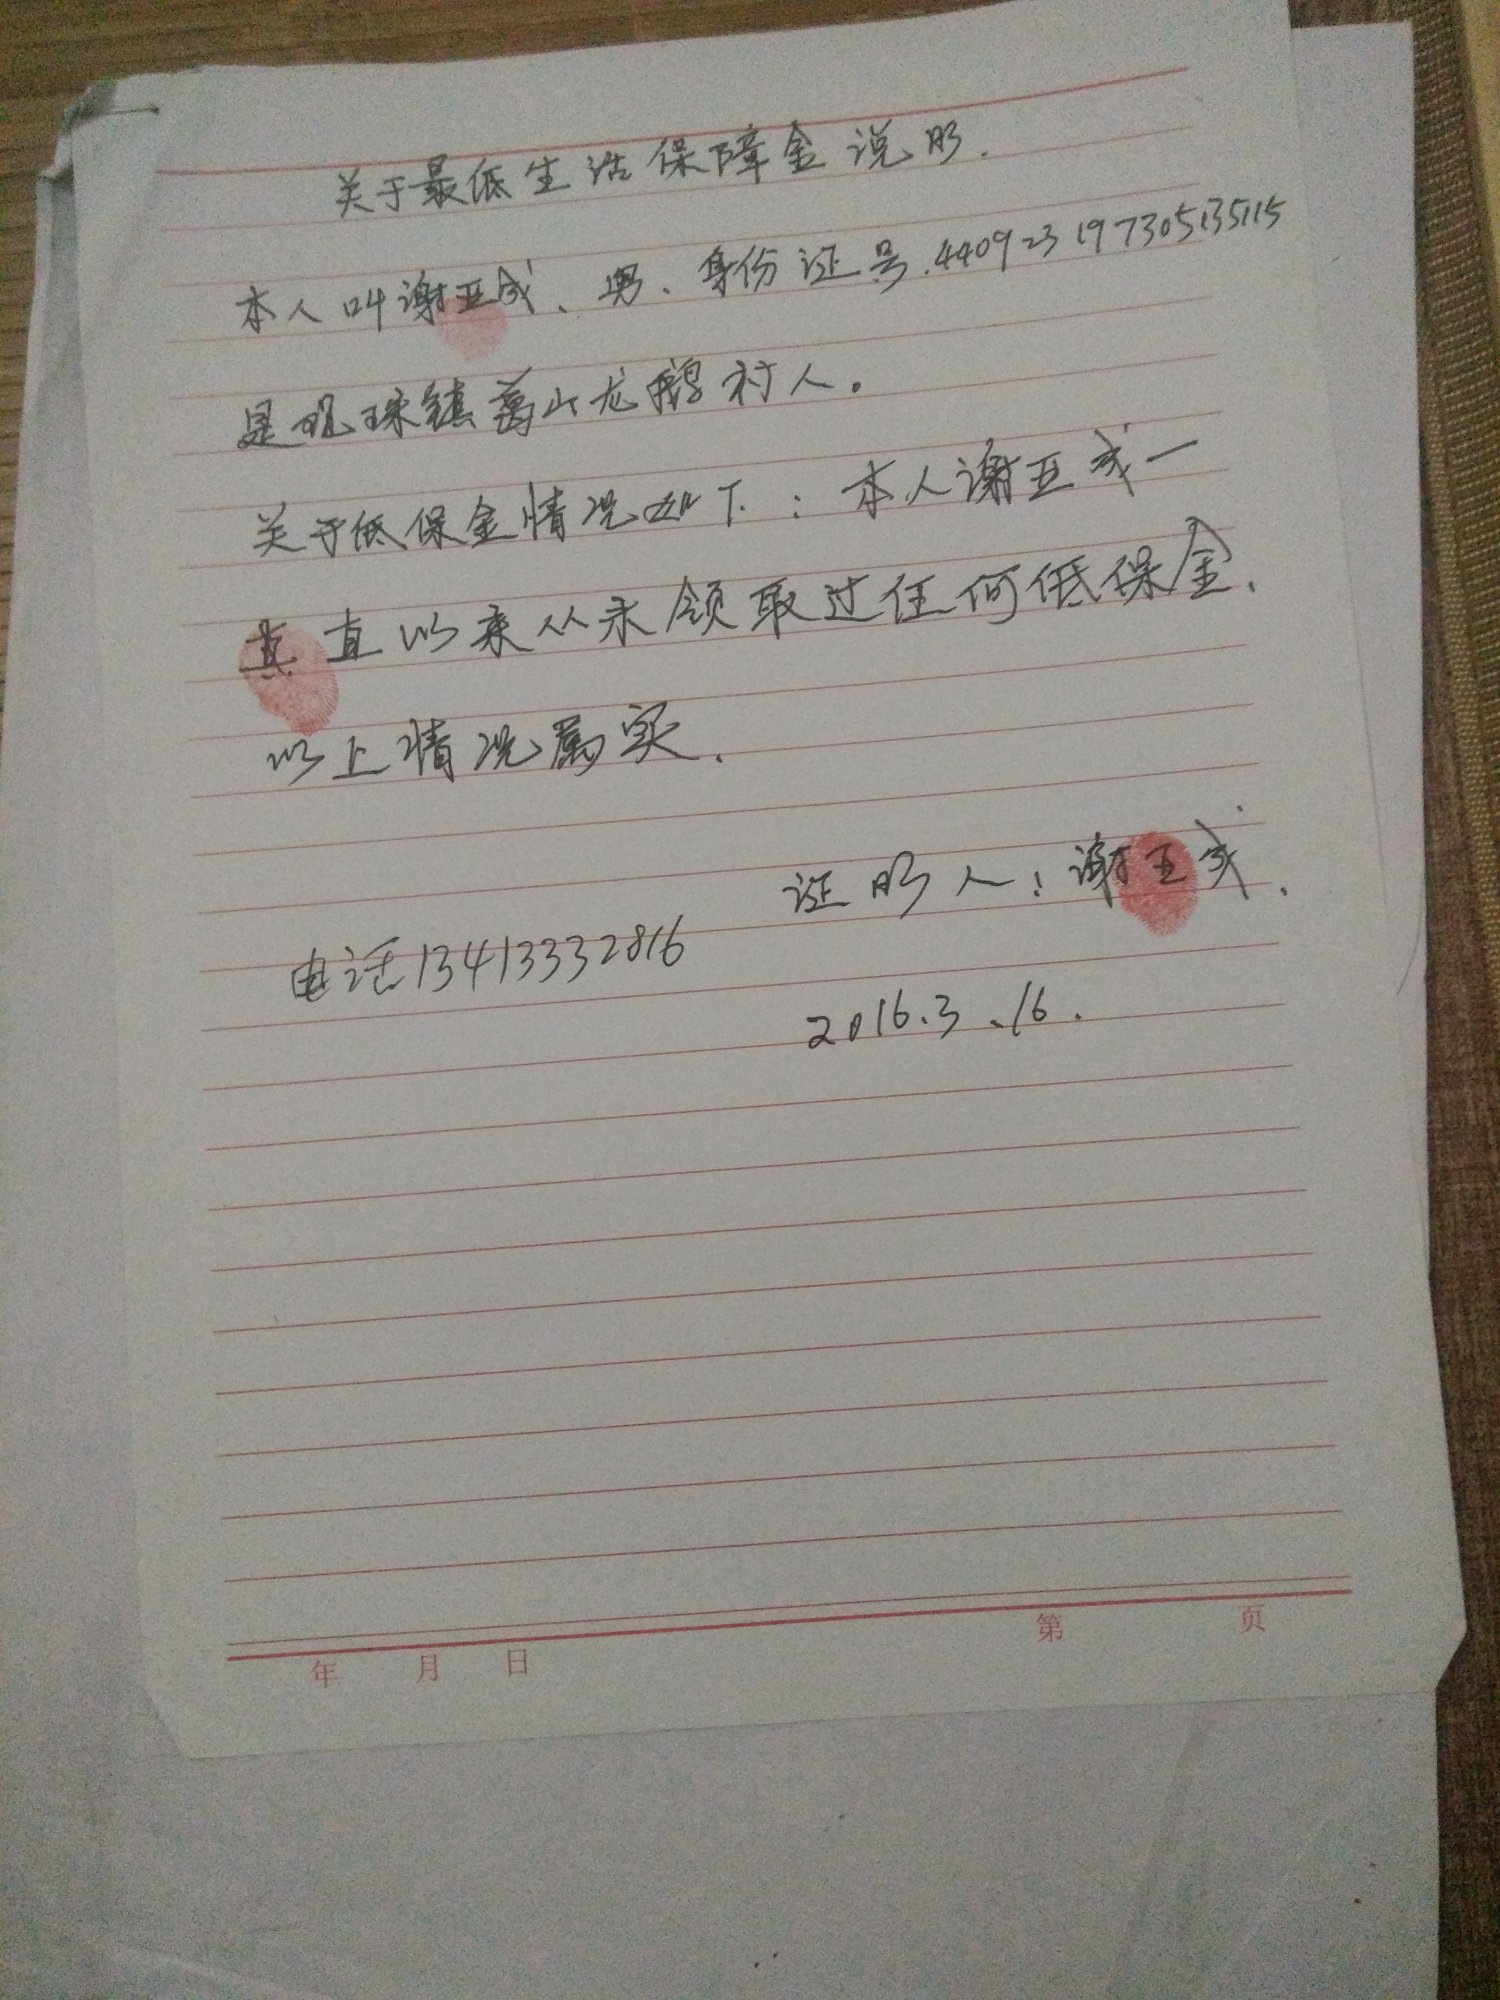 关于最低生活保障金说明.
本人叫谢亚成、男、身份证号.440923197305135115
是观珠镇葛山龙鹅村人。
关于低保金情况如下：本人谢亚成一
直以来从未领取过任何低保金.
以上情况属实.
证明人：谢亚成.
电话13413332816
2016.3.16.
年 月 日 第 页